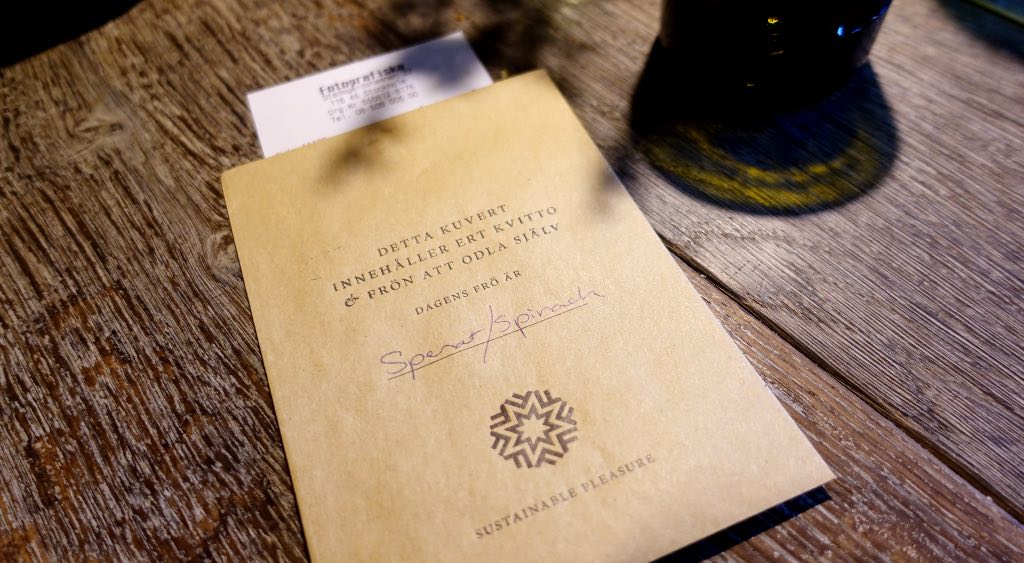 Fotografiska
116 45 Stockholm
DETTA KUVERT
INNEHÅLLER ERT KVITTO
& FRÖN ATT ODLA SJÄLV
DAGENS FRÖ ÄR
Spenat/Spinach
SUSTAINABLE PLEASURE